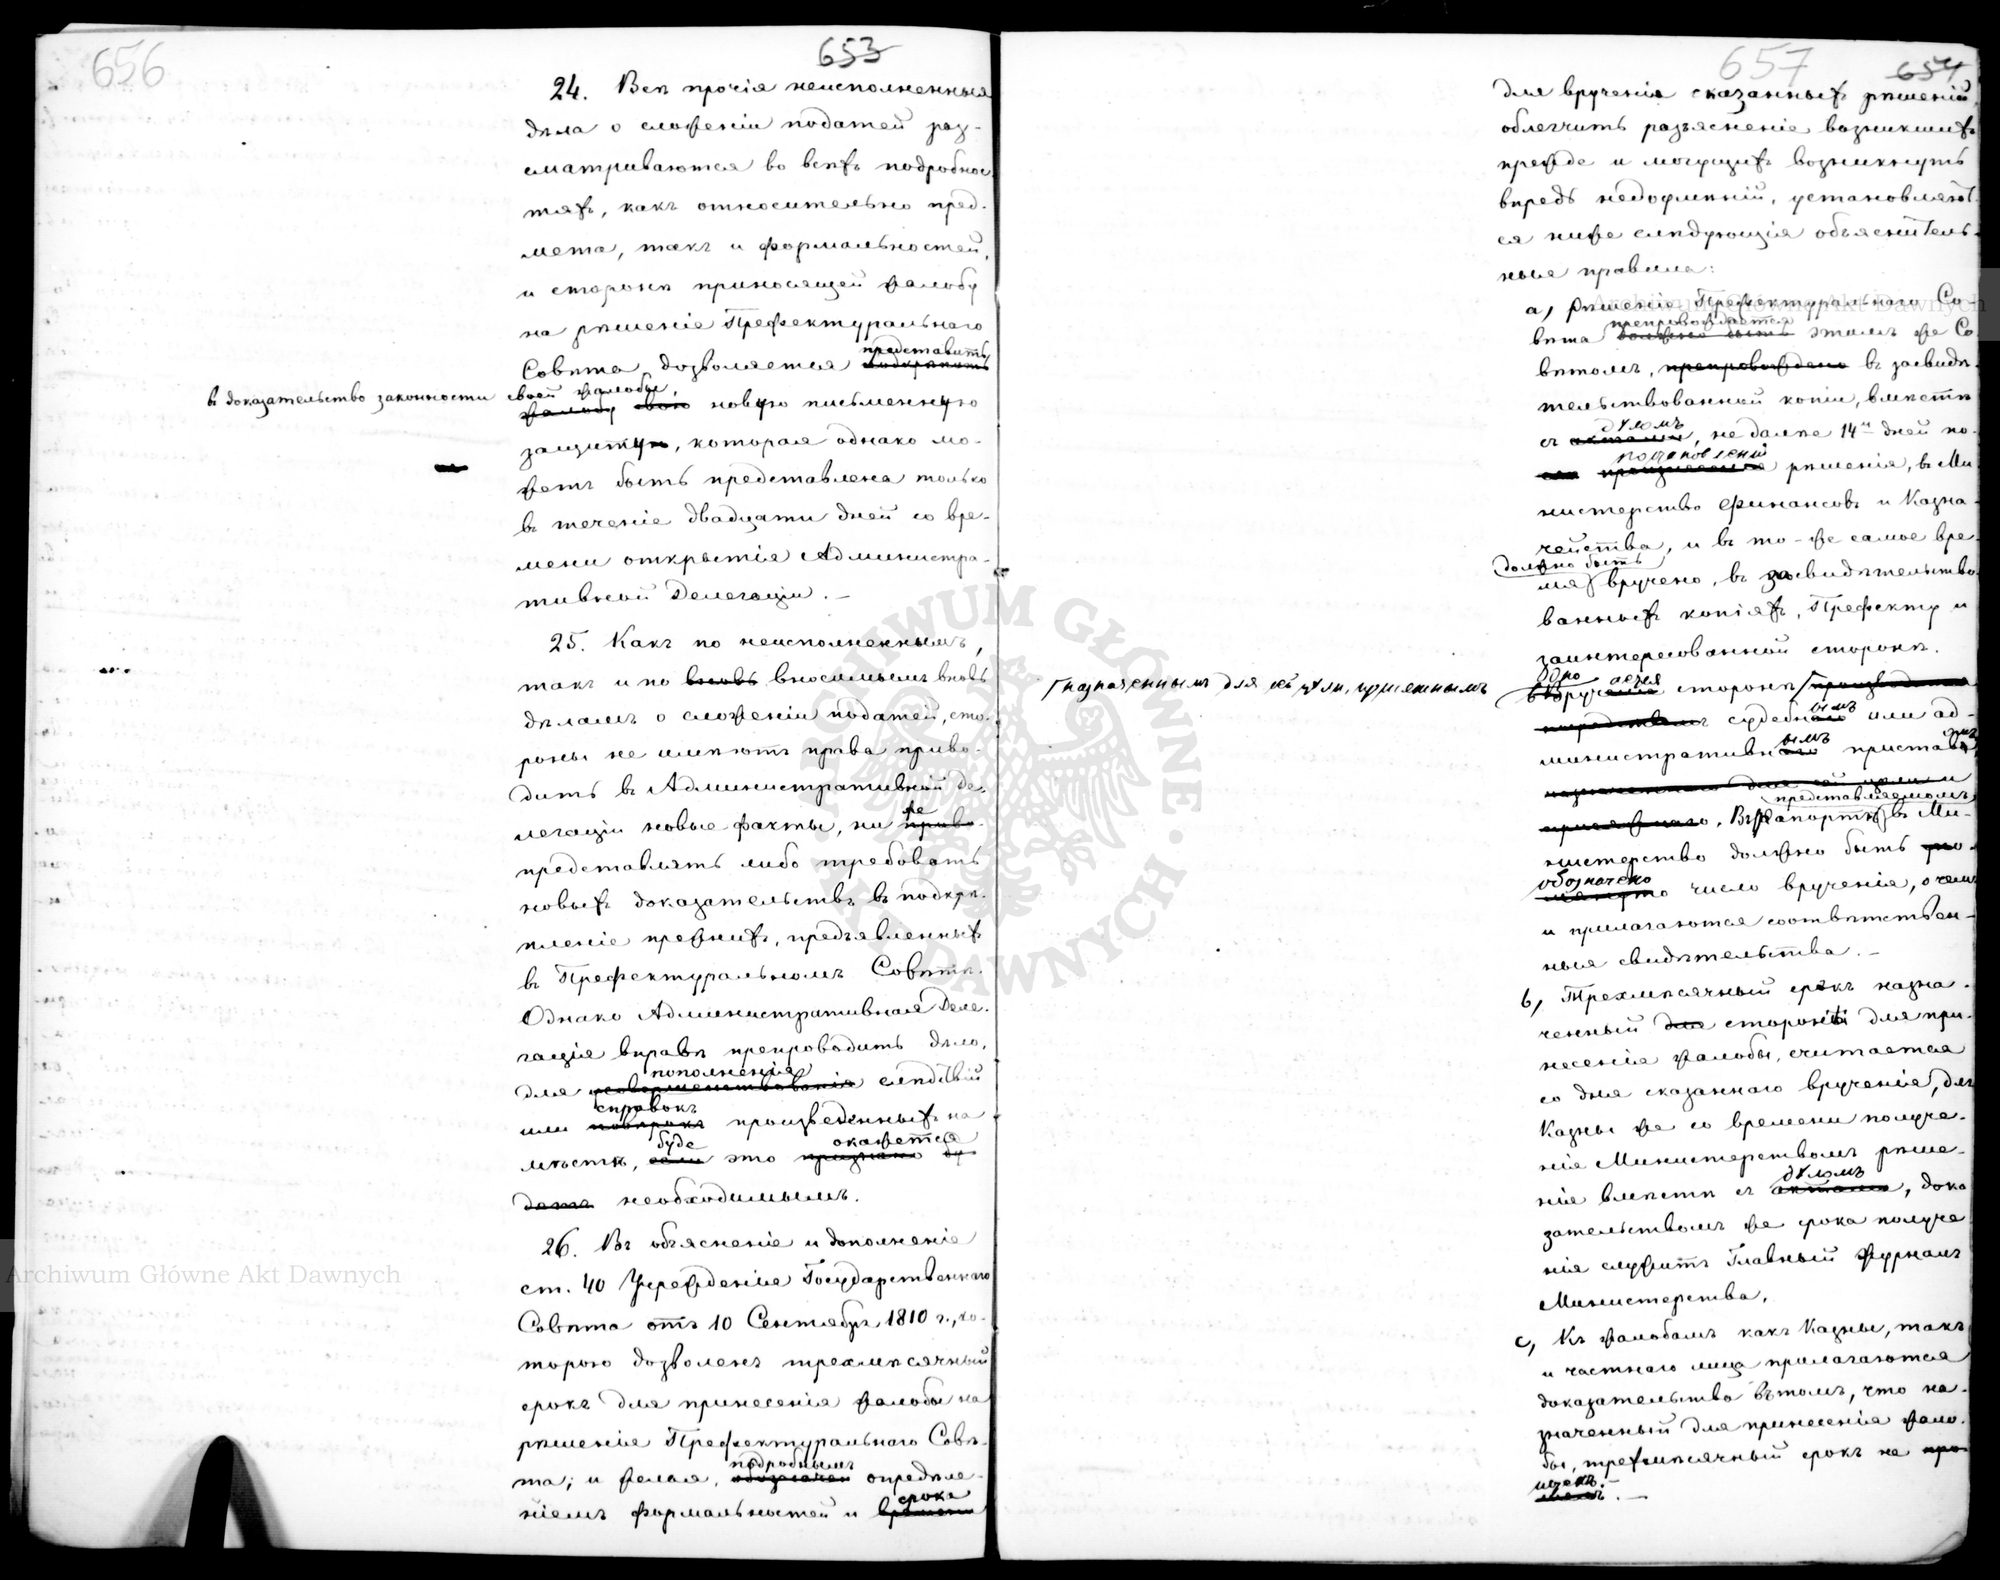 656
653
24. Всѣ прочія неисполненныя
дѣла о сложеніи податей раз-
сматриваются во всѣхъ подробнос-
тяхъ, какъ относительно пред-
мета, такъ и формальностей,
и сторонѣ приносящей жалобу
на рѣшеніе Префектуральнаго
представить
Совѣта дозволяется подкрѣпить
в доказательство законности своей жалобы,
жалобу свою новую письменную
защиту, которая однако мо-
жетъ быть представлена только
въ теченіе двадцати дней со вре-
мени открытія Администра-
тивной Делегаціи. —
25. Какъ по неисполненнымъ,
такъ и по вновь вносимымъ вновь
дѣламъ о сложеніи податей, сто-
роны не имѣютъ права приво-
дить въ Административной Де-
легаціи новые факты, ни же приво-
представлять либо требовать
новыхъ доказательствъ въ подкрѣ-
пленіе прежнихъ, предъявленныхъ
въ Префектуральномъ Совѣтѣ.
Однако Административная Деле-
гація вправѣ препроводить дѣло,
пополненія
для усовершенствованія слѣдствій
справокъ
или повѣрокъ произведенныхъ на
буде окажется
мѣстѣ, если это признано бу-
детъ необходимымъ.
26. Въ объясненіе и дополненіе
ст. 40 Учрежденія Государственнаго
Совѣта отъ 10 Сентября 1810 г., ко-
торою дозволенъ трехмѣсячный
срокъ для принесенія жалобы на
рѣшенія Префектуральнаго Совѣ-
подробнымъ
та; и желая, опредѣле-
срока
ніемъ формальностей и времени
657
654
для врученія сказанныхъ рѣшеній,
облегчить разъясненіе возникшихъ
прежде и могущихъ возникнуть
впредь недоумѣній, установляют-
ся ниже слѣдующія объяснитель-
ныя правила:
а, Рѣшеніе Префектуральнаго Со-
препровождается
вѣта должно быть этимъ же Со-
вѣтомъ, препровождено въ засвидѣ-
тельствованной копіи, вмѣстѣ
дѣломъ
съ актами, не далѣе 14ти дней по-
постановленія
рѣшенія, въ Ми-
нистерство Финансовъ и Казна-
чейства, и въ то-же самое вре-
должно быть
мя вручено, въ засвидѣтельство-
ванныхъ копіяхъ, Префекту и
заинтересованной сторонѣ.
назначеннымъ для сей цѣли, присяжнымъ
врученіе сторонѣ производится
посредствомъ судебнымъ или ад-
министративнымъ приставомъ,
назначеннаго для сей цѣли и
представляемомъ
присяжнаго. Въ рапортѣ въ Ми-
нистерство должно быть
обозначено
число врученія, о чемъ
и прилагаются соотвѣтствен-
ныя свидѣтельства. —
b, Трехмѣсячный срокъ назна-
ченный для стороны для при-
несенія жалобы, считается
со дня сказаннаго врученія, для
Казны же со времени получе-
нія Министерствомъ рѣше-
дѣломъ
нія вмѣстѣ съ актами, дока-
зательствомъ же срока получе-
нія служитъ Главный Журналъ
Министерства.
с, Къ жалобамъ какъ Казны, такъ
и частнаго лица прилагаются
доказательства въ томъ, что на-
значенный для принесенія жало-
бы, трехмѣсячный срокъ не про-
истекъ. —
Archiwum Główne Akt Dawnych
Archiwum Główne Akt Dawnych
ARCHIWUM GŁÓWNE · AKT DAWNYCH ·